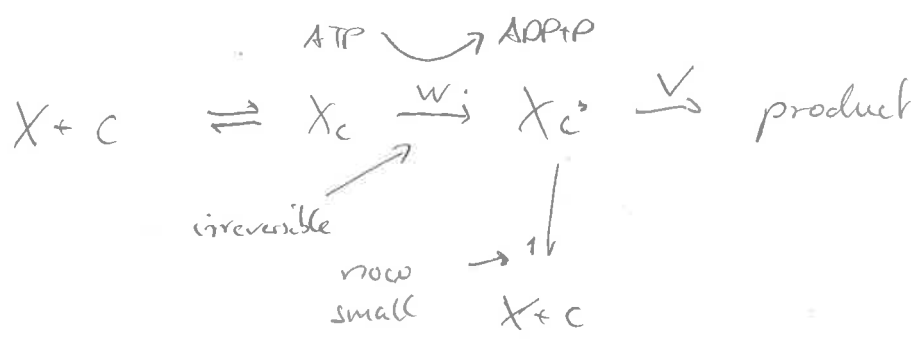 ATP ADP+P
X + C ⇌ Xc W → Xc* V → product
irreversible
now → 1
small
X + C